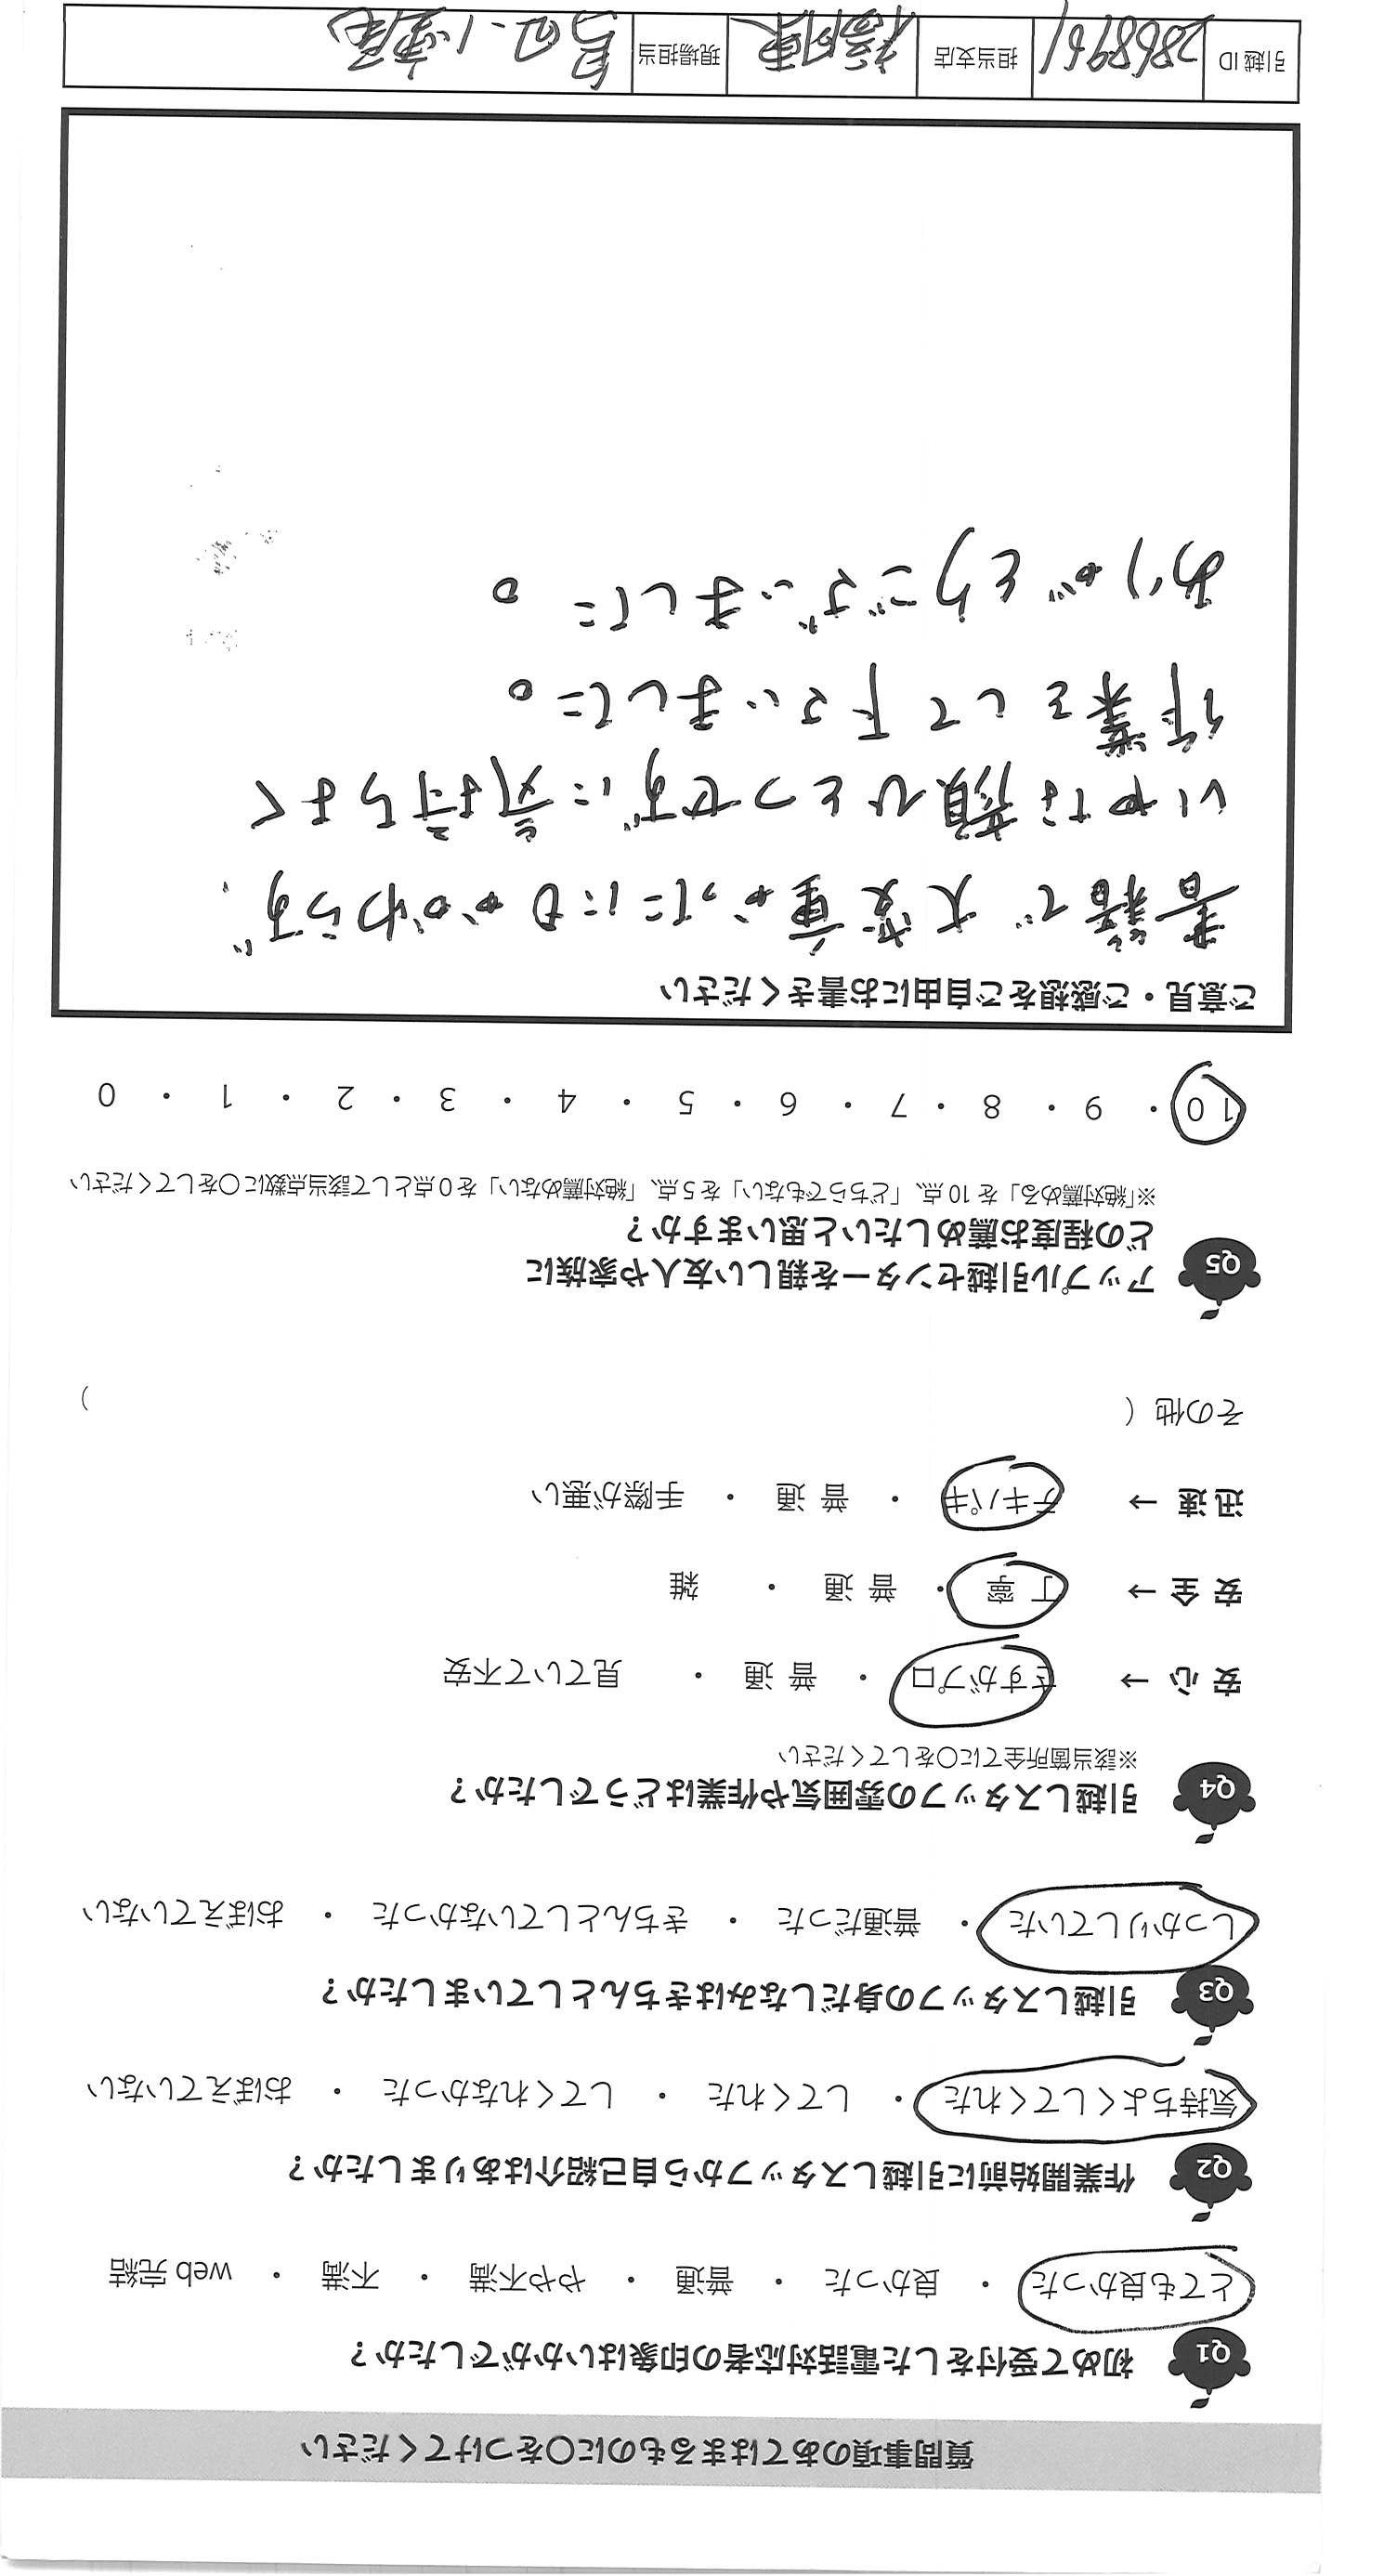 質問事項のあてはまるものに○をつけてください
Q1 初めて受付をした電話対応者の印象はいかがでしたか？
とても良かった ・ 良かった ・ 普通 ・ やや不満 ・ 不満 ・ web 完結
Q2 作業開始前に引越しスタッフから自己紹介はありましたか？
気持ちよくしてくれた ・ してくれた ・ してくれなかった ・ おぼえていない
Q3 引越しスタッフの身だしなみはきちんとしていましたか？
しっかりしていた ・ 普通だった ・ きちんとしていなかった ・ おぼえていない
Q4 引越しスタッフの雰囲気や作業はどうでしたか？
※該当箇所全てに○をしてください
安 心 → さすがプロ ・ 普 通 ・ 見ていて不安
安 全 → 丁 寧 ・ 普 通 ・ 雑
迅 速 → テキパキ ・ 普 通 ・ 手際が悪い
その他（ ）
Q5 アップル引越センターを親しい友人や家族に
どの程度お薦めしたいと思いますか？
※「絶対薦める」を 10 点、「どちらでもない」を 5 点、「絶対薦めない」を 0 点として該当点数に○をしてください
10 ・ 9 ・ 8 ・ 7 ・ 6 ・ 5 ・ 4 ・ 3 ・ 2 ・ 1 ・ 0
ご意見・ご感想をご自由にお書きください
書籍で大変重かったにもかかわらず、
いやな顔ひとつせずに気持ちよく
作業をして下さいました。
ありがとうございました。
引越 ID 2868961 担当支店 福岡東 現場担当